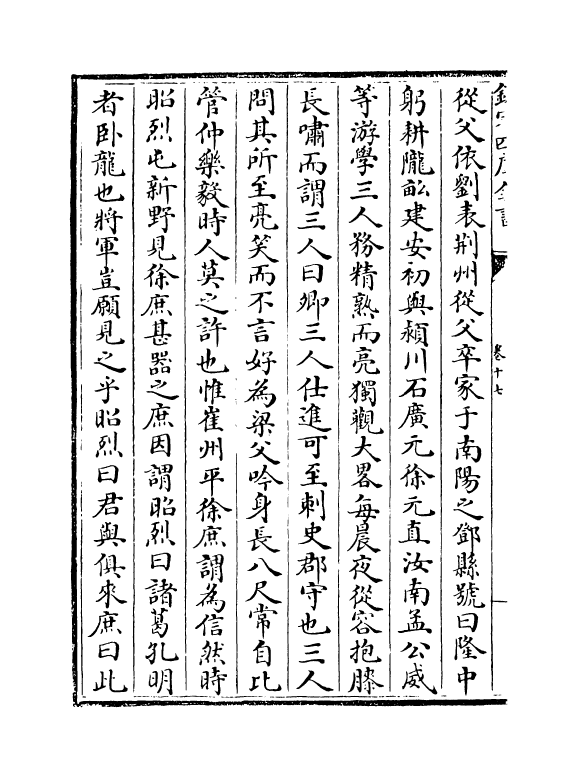 欽定四庫全書
卷十七
從父依劉表荆州從父卒家于南陽之鄧縣號曰隆中
躬耕隴畝建安初與潁川石廣元徐元直汝南孟公威
等游學三人務精熟而亮獨觀大畧每晨夜從容抱膝
長嘯而謂三人曰卿三人仕進可至刺史郡守也三人
問其所至亮笑而不言好為梁父吟身長八尺常自比
管仲樂毅時人莫之許也惟崔州平徐庶謂為信然時
昭烈屯新野見徐庶甚器之庶因謂昭烈曰諸葛孔明
者卧龍也將軍豈願見之乎昭烈曰君與俱來庶曰此